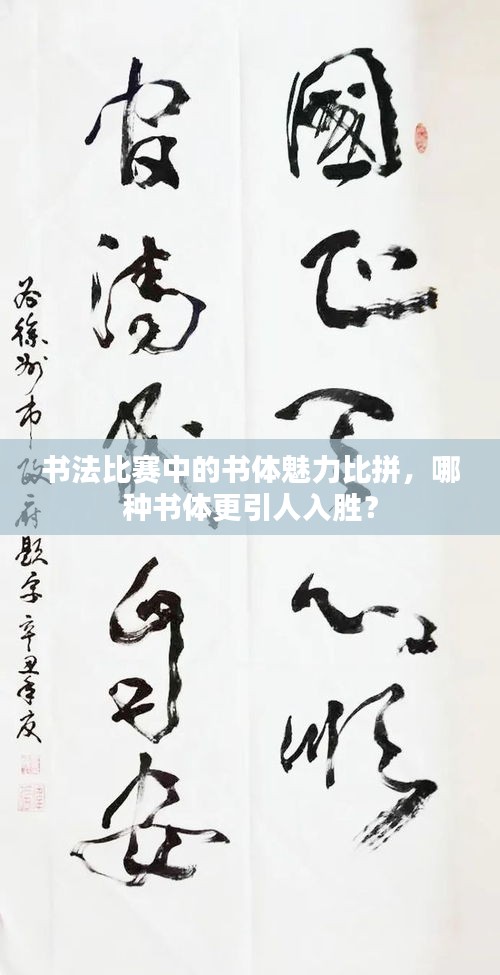 國正天心順
官清民自安
为徐州市政府题字辛丑年
书法比赛中的书体魅力比拼，哪
种书体更引人入胜？